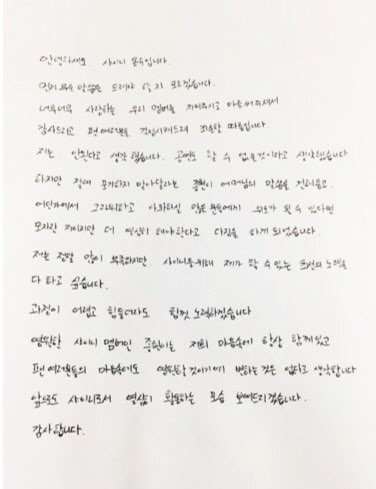 안녕하세요 샤이니 온유입니다.
먼저 무슨 말씀을 드려야 할 지 모르겠습니다.
너무너무 사랑하는 우리 멤버를 지켜주시고 마음써주셔서
감사드리고 팬 여러분들 걱정시켜드려 죄송할 따름입니다.
저는 안된다고 생각 했습니다. 공연도 할 수 없을것이라고 생각했습니다
하지만 절대 포기하지 말아달라는 종현이 어머님의 말씀을 전해듣고
어딘가에서 그리워하고 아파하실 많은 분들에게 위로가 될 수 있다면
모자란 저이지만 더 열심히 해야한다고 다짐을 하게 되었습니다.
저는 정말 많이 부족하지만 샤이니를위해 제가 할 수 있는 최선의 노력을
다 하고 싶습니다.
과정이 어렵고 힘들더라도 힘껏 노력하겠습니다
영원한 샤이니 멤버인 종현이는 저희 마음속에 항상 함께있고
팬 여러분들의 마음속에도 영원할것이기에 변하는것은 없다고 생각합니다
앞으로도 샤이니로서 열심히 활동하는 모습 보여드리겠습니다.
감사합니다.